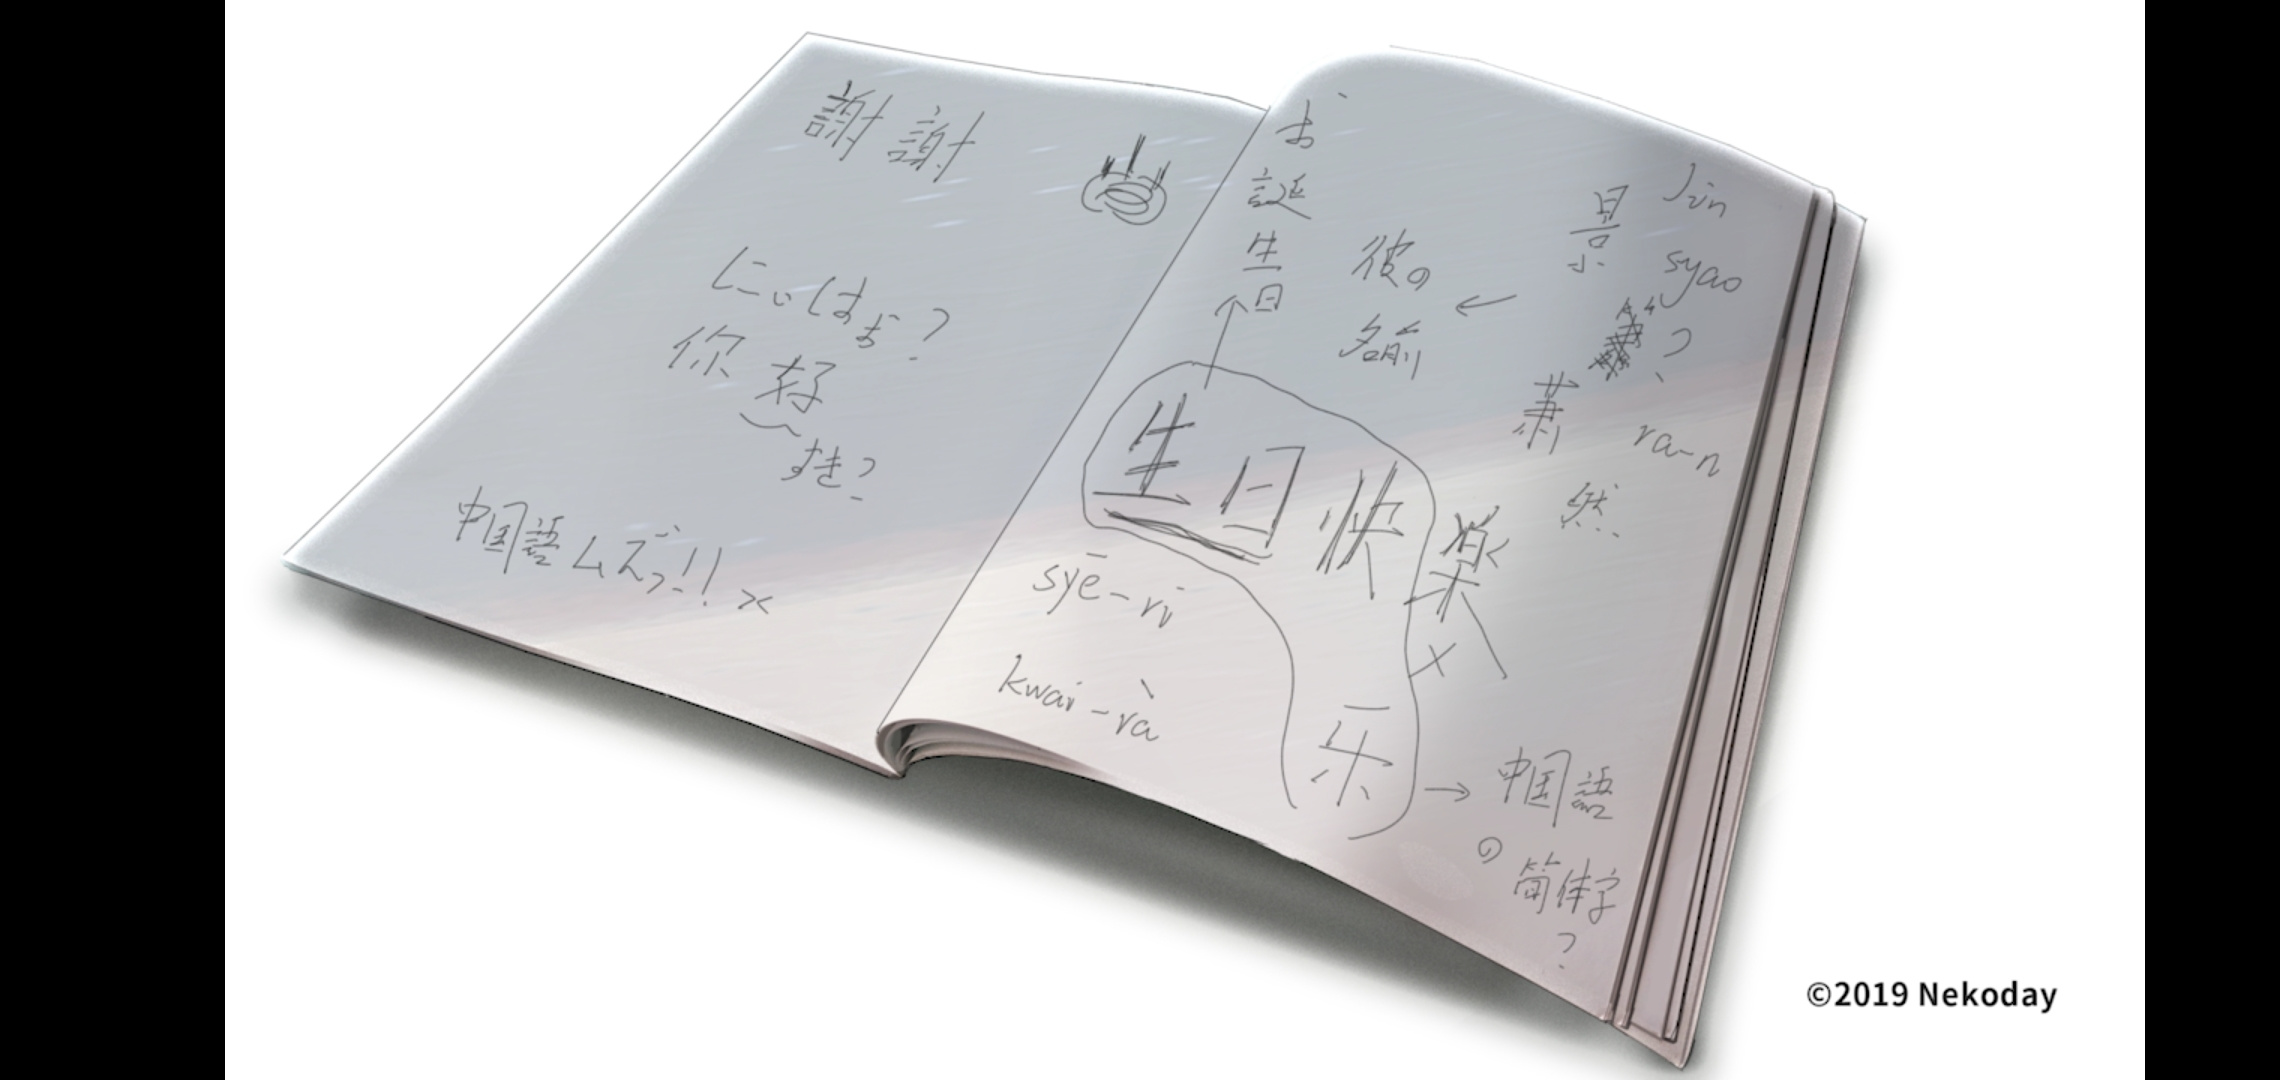 謝謝
にぃはぉ?
你好
すき?
中国語ムズっ!!
お誕生日
彼の
名前
景 Jin
syao
?
蕭
ra-n
然
生日快樂
syē-ri
kwai-rà
乐
中国語
の
簡体字
?
©2019 Nekoday